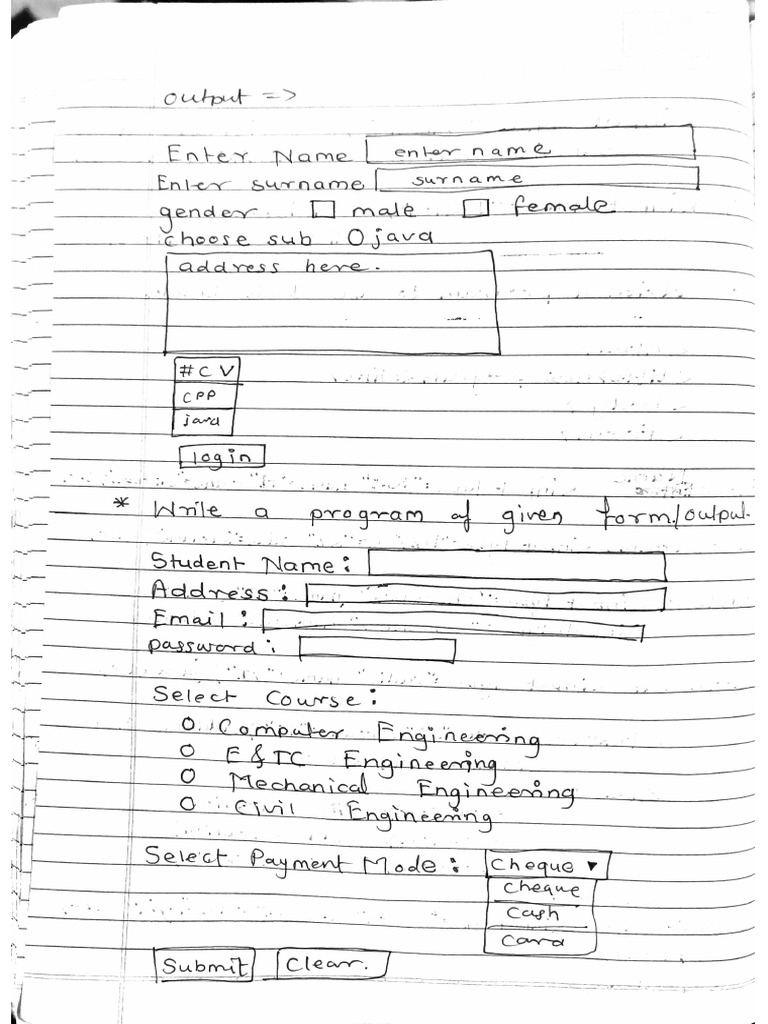 output =>
Enter Name enter name
Enter surname surname
gender male female
choose sub O java
address here.
# C V
CPP
java
login
* Write a program of given form/output.
Student Name :
Address :
Email :
password :
Select Course :
O Computer Engineering
O E&TC Engineering
O Mechanical Engineering
O Civil Engineering
Select Payment Mode : Cheque ▼
Cheque
Cash
Card
Submit Clear.